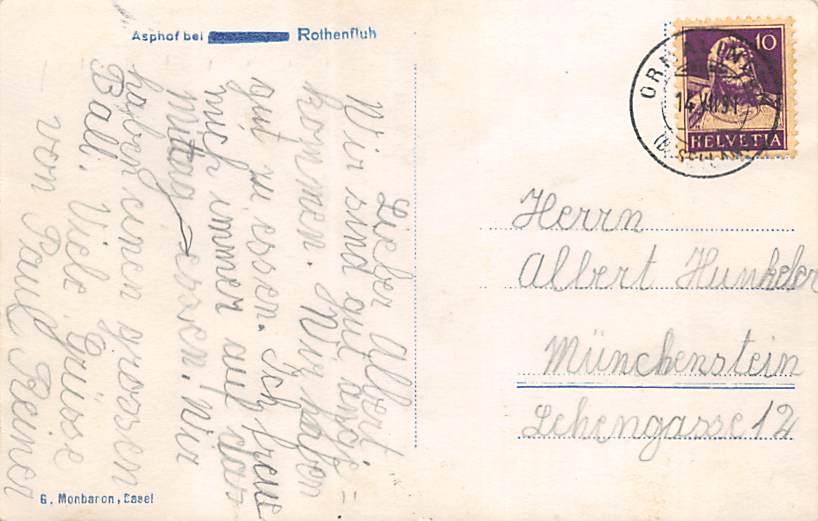 Asphof bei Rothenfluh
10
HELVETIA
Herrn
Albert Hunkeler
Münchenstein
Lehengasse 12
Lieber Albert
Wir sind gut ange=
kommen. Wir haben
gut zu essen. Ich freue
mich immer auf das
Mittag essen. Wir
haben einen grossen
Ball. Viele Grüsse
von Paul Reiner
G. Monbaron, Basel